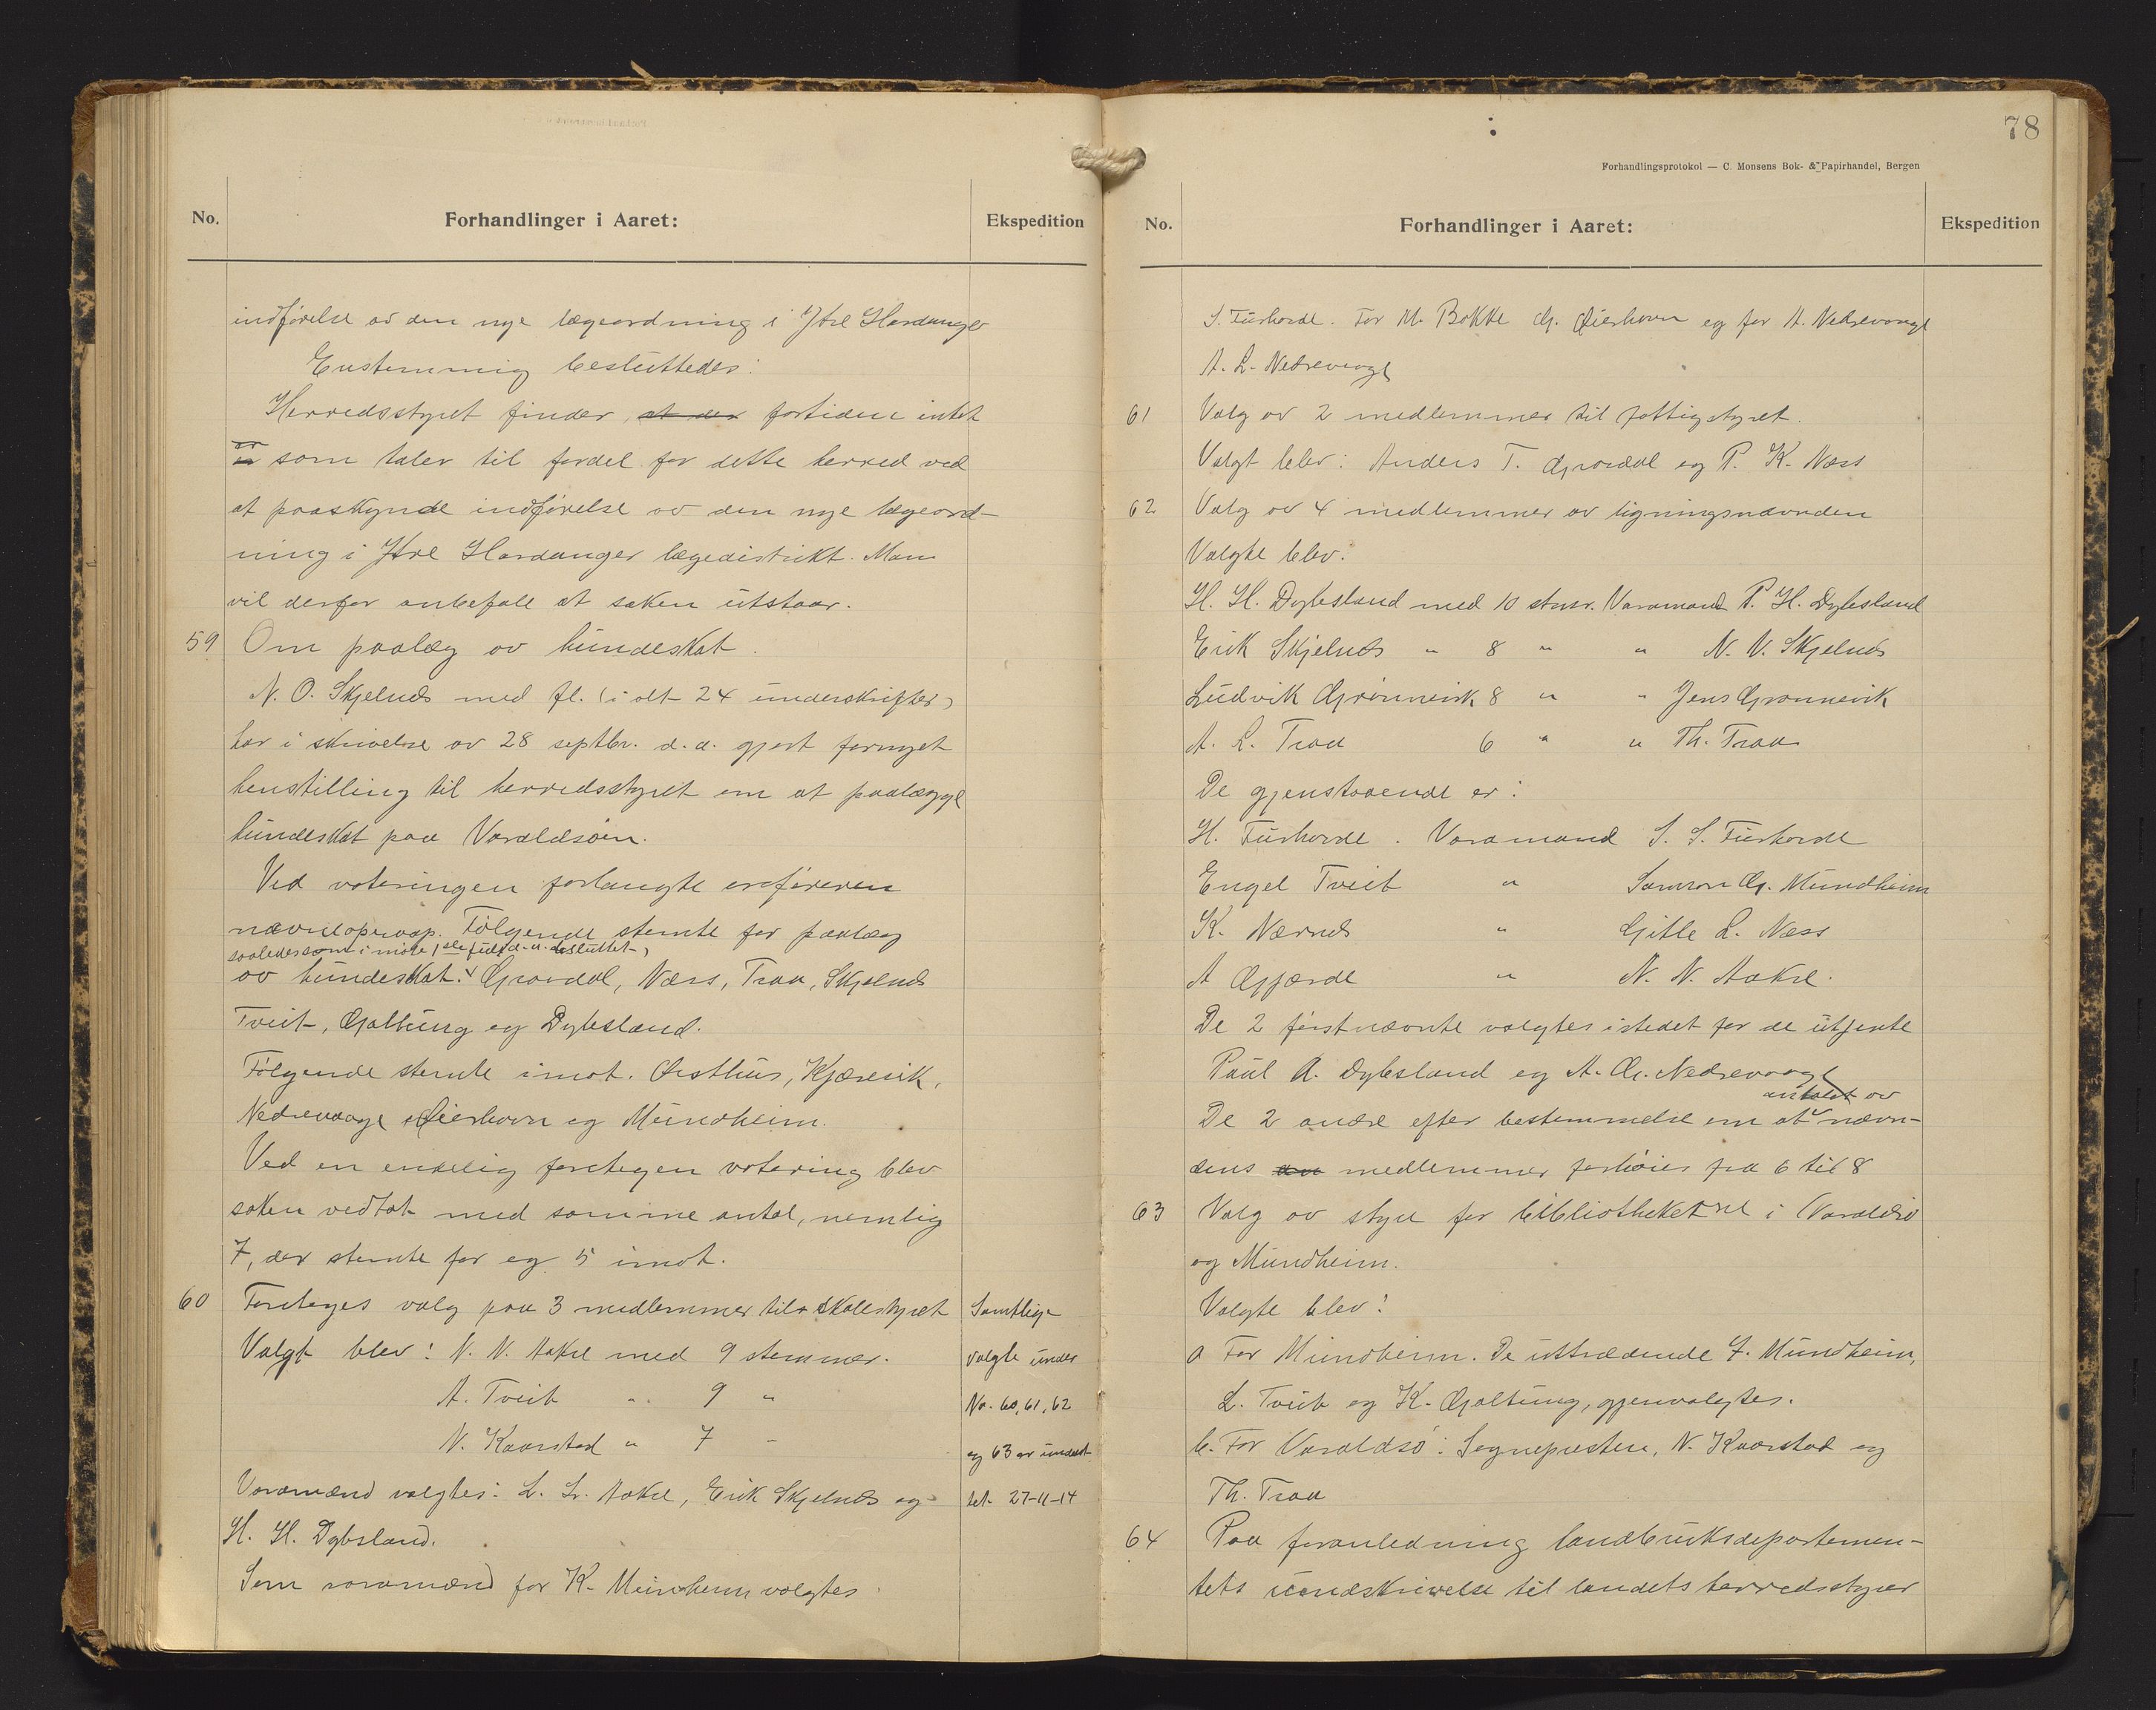 No. Forhandlinger i Aaret: Ekspedition
indførelse av den nye lægeordning i Ytre Hardanger
Enstemmig besluttedes:
Herredsstyret finder, at der fortiden intet
er som taler til fordel for dette herred ved
at paaskynde indførelse av den nye lægeord-
ning i Ytre Hardanger lægedistrikt. Man
vil derfor anbefale at saken utstaar.
59 Om paalæg av hundeskat.
N. O. Skjelnes med fl. (i alt 24 underskrifter)
har i skrivelse av 28 septbr. d.a. gjort fornyet
henstilling til herredsstyret om at paalægge
hundeskat paa Varaldsøen.
Ved voteringen forlangte ordføreren
navneoprop. Følgende stemte for paalæg
saaledes som i møte 1ste juli d.a. besluttet,
av hundeskat. Gravdal, Næss, Traa, Skjelnes
Tveit, Galtung og Dybsland.
Følgende stemte imot. Østhus, Kjærevik,
Nedrevaage, Øierhavn og Mundheim.
Ved en endelig foretagen votering blev
saken vedtat med samme antal, nemlig
7, der stemte for og 5 imot.
60 Foretages valg paa 3 medlemmer til skolestyret
Valgt blev: N. N. Aakre med 9 stemmer.
A. Tveit " 9 "
N. Kaarstad " 7 "
Varamænd valgtes: L. L. Aakre, Erik Skjelnes og
H. H. Dybsland.
Som varamænd for K. Mundheim valgtes
Samtlige
valgte under
No. 60, 61, 62
og 63 er underet
tet 27-11-14
78
Forhandlingsprotokol — C. Monsens Bok- & Papirhandel, Bergen
No. Forhandlinger i Aaret: Ekspedition
S. Furhovde. For M. Bakke G. Øierhavn og for A. Nedrevaage
A. L. Nedrevaage
61 Valg av 2 medlemmer til fattigstyret.
Valgt blev: Anders T. Gravdal og P. K. Næss
62 Valg av 4 medlemmer av ligningsnævnden
Valgte blev:
H. H. Dybesland med 10 stmr. Varamand P. H. Dybesland
Erik Skjelnes " 8 " " N. N. Skjelnes
Ludvik Grønnevik 8 " " Jens Grønnevik
A. L. Traa 6 " " Th. Traa
De gjenstaaende er:
H. Furhovde. Varamand S. S. Furhovde
Engel Tveit " Samson G. Mundheim
K. Nærnes " Gitle L. Næss
A Gjærde " N. N. Aakre.
De 2 førstnævnte valgtes istedet for de utjente
Paul A. Dybsland og A. G. Nedrevaage
antalet av
De 2 andre efter bestemmelse om at nævn-
dens medlemmer forhøies fra 6 til 8
63 Valg av styre for bibliothekerne i Varaldsø
og Mundheim.
Valgte blev:
a For Mundheim. De uttrædende J. Mundheim,
L. Tveit og K. Galtung, gjenvalgtes.
b. For Varaldsø: Sognepresten, N. Kaarstad og
Th. Traa
64 Paa foranledning landbruksdepartemen-
tets rundskrivelse til landets herredsstyrer